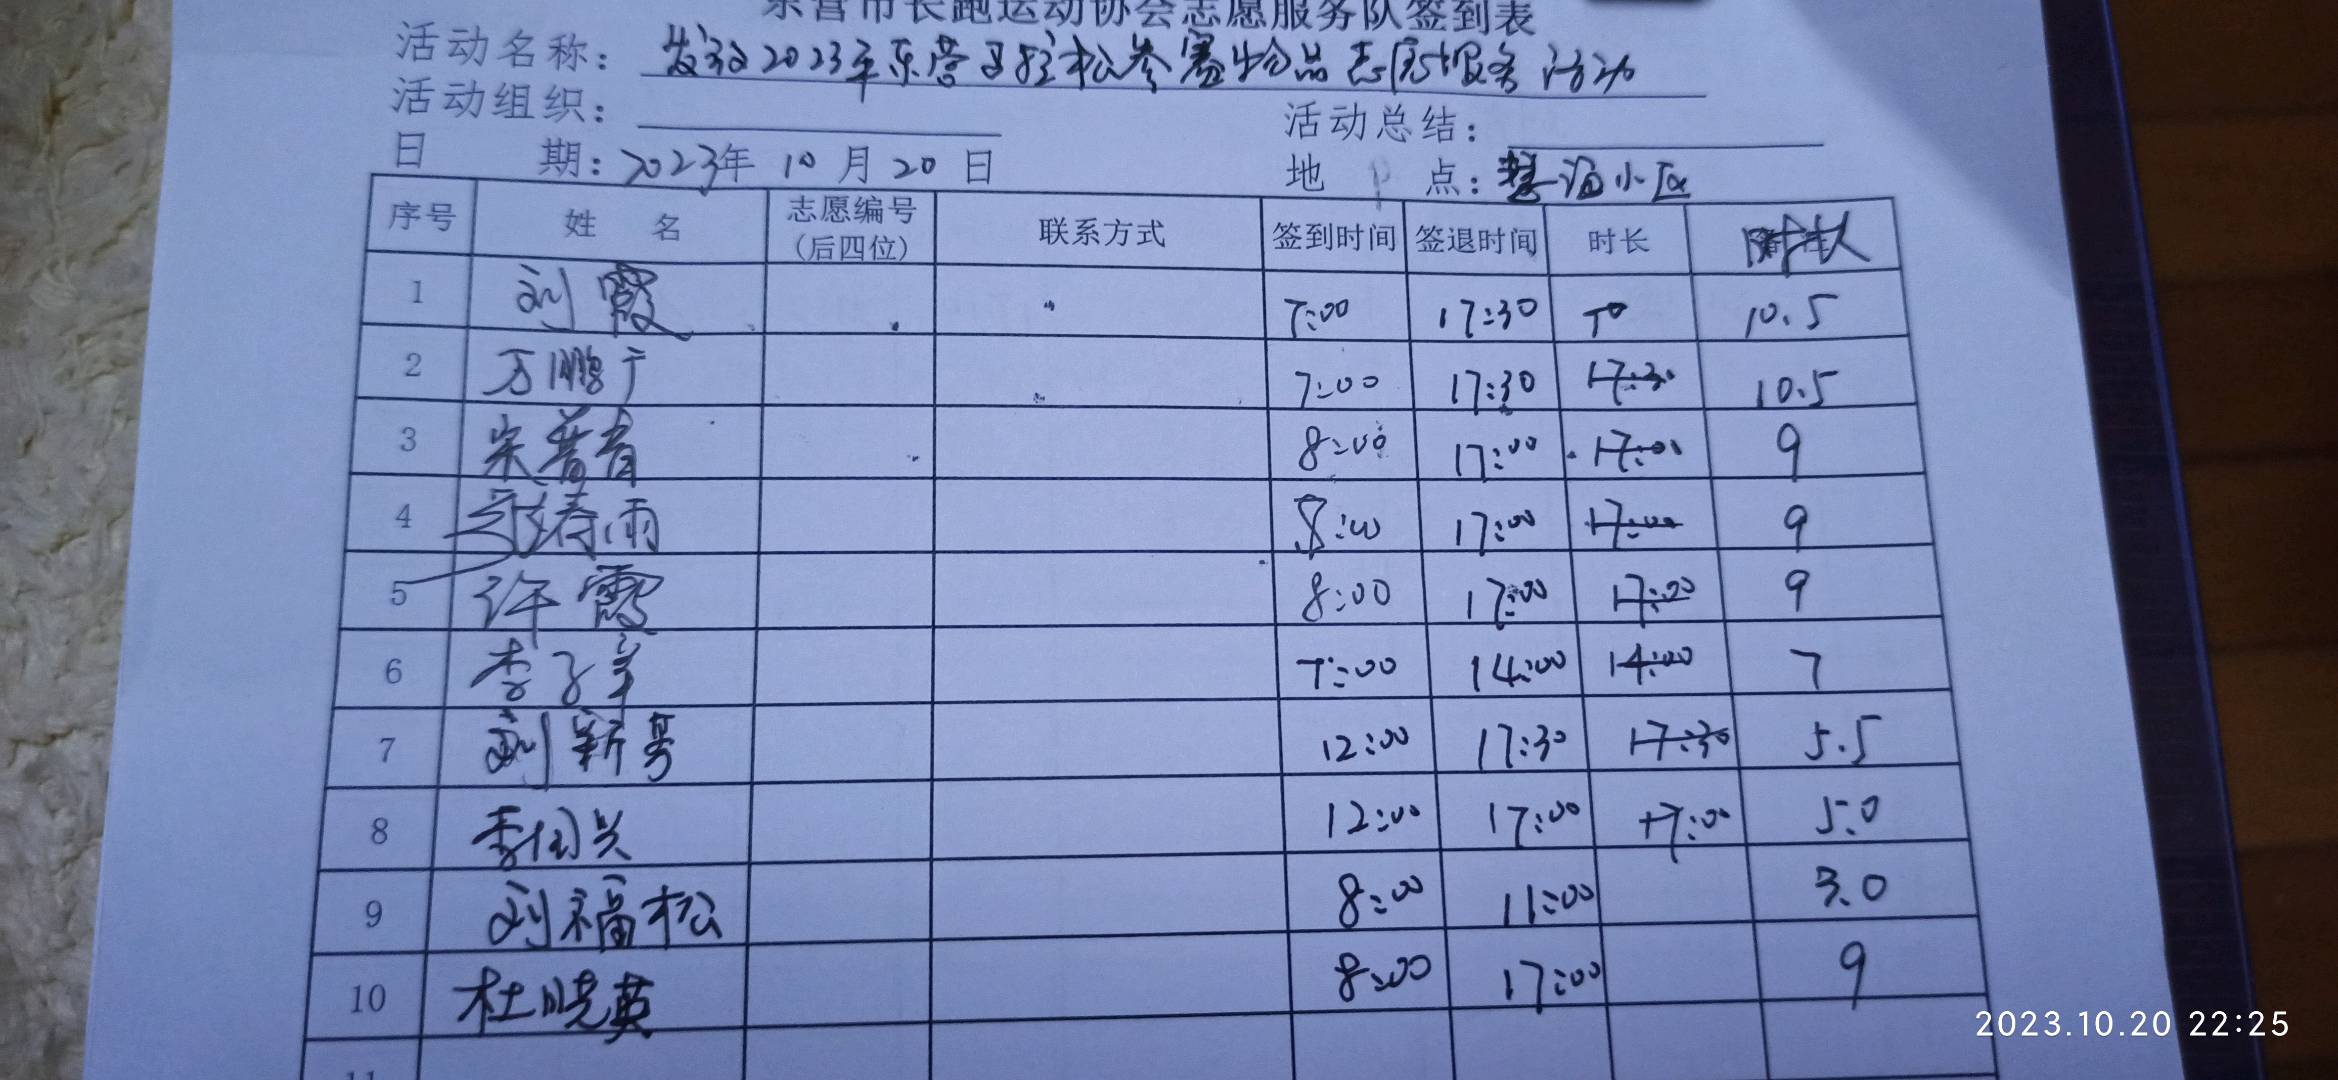 东营市长跑运动协会志愿服务队签到表
活动名称: 发放2023年东营马拉松参赛物品志愿服务活动
活动组织:
活动总结:
日 期: 2023年 10 月 20 日
地 点: 小区
序号 姓 名 志愿编号(后四位) 联系方式 签到时间 签退时间 时长 时长
1 刘霞 7:00 17:30 10.5
2 万鹏于 7:00 17:30 17:30 10.5
3 宋普青 8:00 17:00 17:00 9
4 春雨 8:00 17:00 17:00 9
5 许霞 8:00 17:00 17:00 9
6 李子羊 7:00 14:00 14:00 7
7 刘新 12:00 17:30 17:30 5.5
8 李国兴 12:00 17:00 17:00 5.0
9 刘福松 8:00 11:00 3.0
10 杜晓英 8:00 17:00 9
11
2023.10.20 22:25